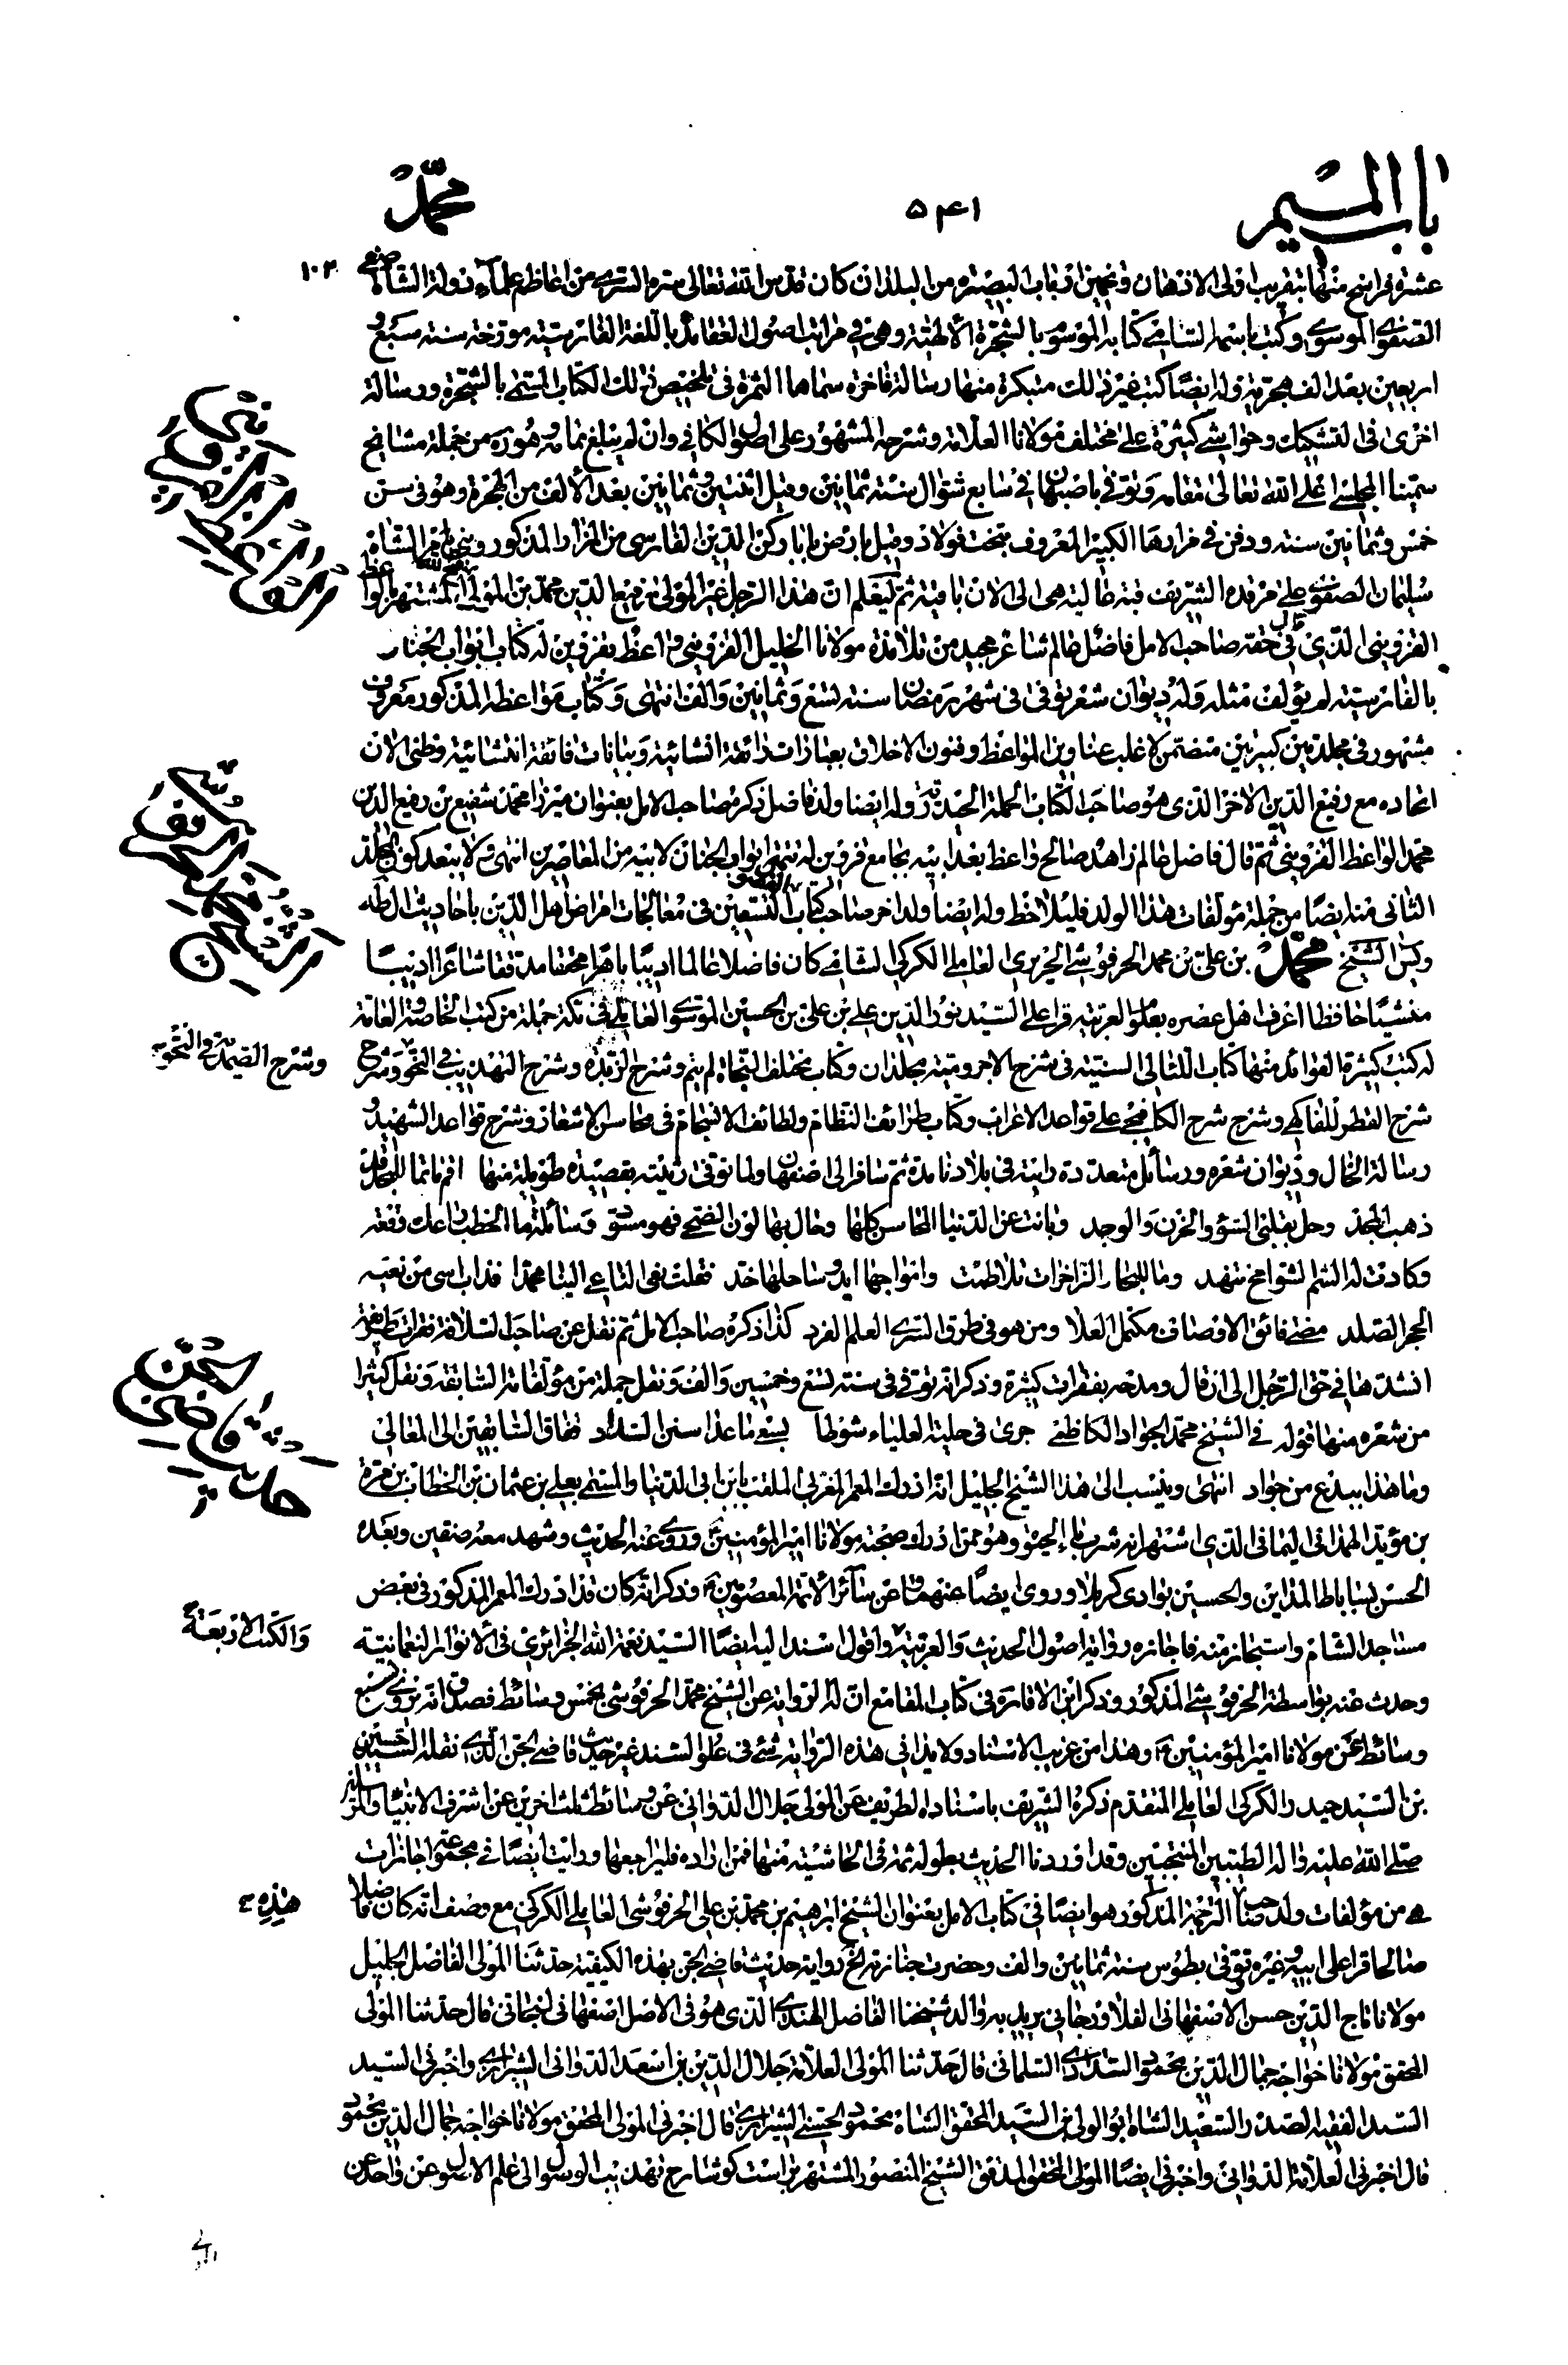 باب الميم
٥٤١
محمد
عشرة فراسخ منها بتقريب اولى الاذهان وتخمين ارباب البصيرة من البلدان كان قدس الله تعالى سره السرى من اعاظم علماء دولة الشاه صفى
الصفوى الموسوى وكتب باسمه السامى كتابه الموسوم بالشجرة الالهية وهى فى مراتب اصول العقائد باللغة الفارسية مورخة سنة سبع و
اربعين بعد الف هجرية وله ايضا كتب غير ذلك مبتكرة منها رسالة فاخرة سماها الثمرة فى تلخيص ذلك الكتاب المسمى بالشجرة ورسالة
اخرى فى التشكيك وحواشى كثيرة على مختلف مولانا العلامة وشرحه المشهور على اصول الكافى وان لم يبلغ تمامه وهو ره من جملة مشايخ
سمينا المجلسى اعلى الله تعالى مقامه وتوفى باصبهان فى سابع شوال سنة ثمانين وقيل اثنتين وثمانين بعد الالف من الهجرة وهو فى سن
خمس وثمانين سنة ودفن فى مزارها الكبير المعروف بتخت فولاذ وقيل بارض بابا ركن الدين الفارسى من المزار المذكور وبنى بامر الشاه
سليمان الصفوى على مرقده الشريف قبة عالية هى الى الان باقية ثم ليعلم ان هذا الرجل غير المولى رفيع الدين محمد بن المولى فتح الله المشتهر بالواعظ
القزوينى الذى قال فى حقه صاحب الامل فاضل عالم شاعر مجيد من تلامذة مولانا الخليل القزوينى واعظ بقزوين له كتاب ابواب الجنان
بالفارسية لم يؤلف مثله وله ديوان شعر توفى فى شهر رمضان سنة تسع وثمانين والف انتهى وكتاب مواعظه المذكور معروف
مشهور فى مجلدين كبيرين متضمن لاغلب عناوين المواعظ وفنون الاخلاق بعبارات رائقة انشائية وبيانات فائقة انشائية وظنى الان
اتحاده مع رفيع الدين الاخر الذى هو صاحب الكتاب الحملة الحيدرية وله ايضا ولد فاضل ذكره صاحب الامل بعنوان ميرزا محمد شفيع بن رفيع الدين
محمد الواعظ القزوينى ثم قال فاضل عالم زاهد صالح واعظ بعد ابيه بجامع قزوين له تتمة ابواب الجنان لابيه من المعاصرين انتهى ولا يبعد كون المجلد
الثانى منه ايضا من جملة مؤلفات هذا الولد فليلاحظ وله ايضا ولد اخر صاحب كتاب فى معالجات امراض اهل الدين باحاديث ال طه
ويس الشيخ محمد بن على بن محمد الحرفوشى الحريرى العاملى الكركى الشامى كان فاضلا عالما اديبا ماهرا محققا مدققا شاعرا اديبا
منشيا حافظا اعرف اهل عصره بعلوم العربية قرا على السيد نور الدين على بن على بن الحسين الموسوى العاملى فى مكة جملة من كتب الخاصة والعامة
له كتب كثيرة الفوائد منها كتاب اللئالى السنية فى شرح الاجرومية مجلدان وكتاب مختلف النحاة لم يتم وشرح الزبدة وشرح التهذيب فى النحو وشرح
شرح القطر للفاكهى وشرح شرح الكافيجى على قواعد الاعراب وكتاب طرائف النظام ولطائف الانسجام فى محاسن الاشعار وشرح قواعد الشهيد و
رسالة الخال وديوان شعره ورسائل متعددة رايته فى بلادنا مدة ثم سافر الى اصفهان ولما توفى رثيته بقصيدة طويلة منها اقم ماتما للمجد قد
ذهب المجد وجل بقلبى السوء والحزن والوجد وبانت عن الدنيا المحاسن كلها وحال بها لون الضحى فهو مسود وسائلة ما الخطب راعك وقعه
وكادت له الشم الشوامخ تنهد وما للبحار الزاخرات تلاطمت وامواجها ايد وساحلها خد فقلت نعى الناعى الينا محمدا فذاب اسى من نعيه
الحجر الصلد مضى فائق الاوصاف مكتمل العلا ومن هو فى طرق السرى العلم الفرد كذا ذكره صاحب الامل ثم نقل عن صاحب السلافة فقرات طريفة
انشدها فى حق الرجل الى ان قال ومدحه بفقرات كثيرة وذكر انه توفى فى سنة تسع وخمسين والف ونقل جملة من مؤلفاته السابقة ونقل كثيرا
من شعره منها قوله فى الشيخ محمد الجواد الكاظمى جرى فى حلبة العلياء شوطا بسعى ما عدا سنن السداد ففاق السابقين الى المعالى
وما هذا ببدع من جواد انتهى وينسب الى هذا الشيخ الجليل انه ادرك المعمر المغربى الملقب بابن ابى الدنيا والمسمى بعلى بن عثمان بن الخطاب بن مرة
بن مؤيد الهمدانى اليمانى الذى اشتهر انه شرب ماء الحيوة وهو ممن ادرك صحبة مولانا امير المؤمنين وروى عنه الحديث وشهد معه صفين وبعده
الحسن بساباط المداين والحسين بوادى كربلا وروى ايضا عنهما وعن سائر الائمة المعصومين وذكر انه كان قد ادرك المعمر المذكور فى بعض
مساجد الشام واستجاز منه فاجازه رواية اصول الحديث والعربية واقول اسند اليه ايضا السيد نعمة الله الجزائرى فى الانوار النعمانية
وحدث عنه بواسطة الحرفوشى المذكور وذكر ابن الاقارة فى كتاب المقامع ان له الرواية عن الشيخ محمد الحرفوشى بخمس وسائط فصدق انه يروى بتسع
وسائط عن مولانا امير المؤمنين وهذا من غريب الاسناد ولا يدانى هذه الرواية شئ فى علو السند غير حديث قاضى الجن الذى نقله السيد حسين
بن السيد حيدر الكركى العاملى المتقدم ذكره الشريف باسناده الطريف عن المولى جلال الدوانى عن وسائط ثلث اخرين عن اشرف الانبياء والمرسلين
صلى الله عليه واله الطيبين المنتجبين وقد اوردنا الحديث بطوله ثمة فى الحاشية منها فمن اراده فليراجعها ورايت ايضا فى مجموعة اجازات
هى من مؤلفات ولد صاحب الترجمة المذكور هو ايضا فى كتاب الامل بعنوان الشيخ ابرهيم بن محمد بن على الحرفوشى العاملى الكركى مع وصف انه كان فاضلا
صالحا قرا على ابيه وغيره توفى بطوس سنة ثمانين والف وحضرت جنازته الخ رواية حديث قاضى الجن بهذه الكيفية حدثنا المولى الفاضل الجليل
مولانا تاج الدين حسن الاصفهانى الفلاورجانى يريد به والد شيخنا الفاضل الهندى الذى هو فى الاصل اصفهانى لنجانى قال حدثنا المولى
المحقق مولانا خواجه جمال الدين محمود السدادى السلمانى قال حدثنا المولى العلامة جلال الدين بن اسعد الدوانى الشيرازى واخبرنى السيد
السند الفقيه الصدر السعيد الشاه ابو الولى بن السيد المحقق الشاه محمود الحسنى الشيرازى قال اخبرنى المولى المحقق مولانا خواجه جمال الدين محمود
قال اخبرنى العلامة الدوانى واخبرنى ايضا المولى المحقق المدقق الشيخ المنصور المشتهر براست كو شارح تهذيب الوصول الى علم الاصول عن واحد عن
١٠٢
وشرح الصمدية فى النحو
حديث قاضى الجن
والكتب الاربعة
هذه